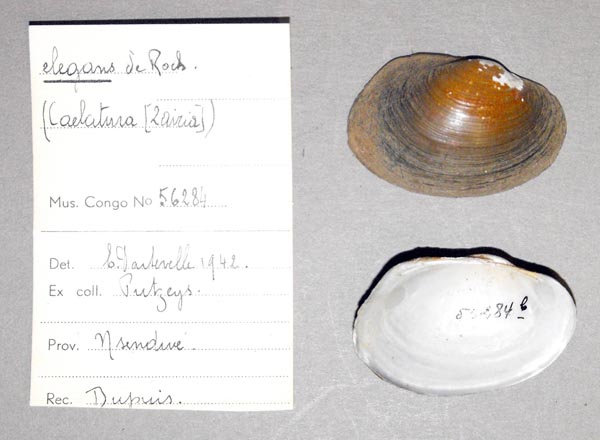 elegans de Roch.
(Caelatura [Zairia])
Mus. Congo No 56284
Det. E. Dartevelle 1942.
Ex coll. Putzeys.
Prov. Nsendwe
Rec. Dupuis.
56284 b